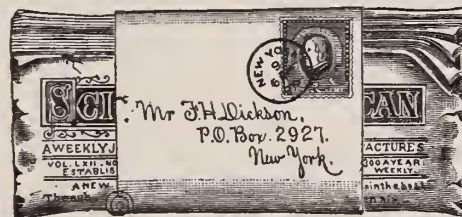 NEW YO
SCI
CAN
Mr F.H. Dickson,
P.O. Box. 2927.
New York.
A WEEKLY J
ACTURES
VOL. LXII. NO
ESTABLIS
00 A YEAR
WEEKLY.
A NEW
in the boat